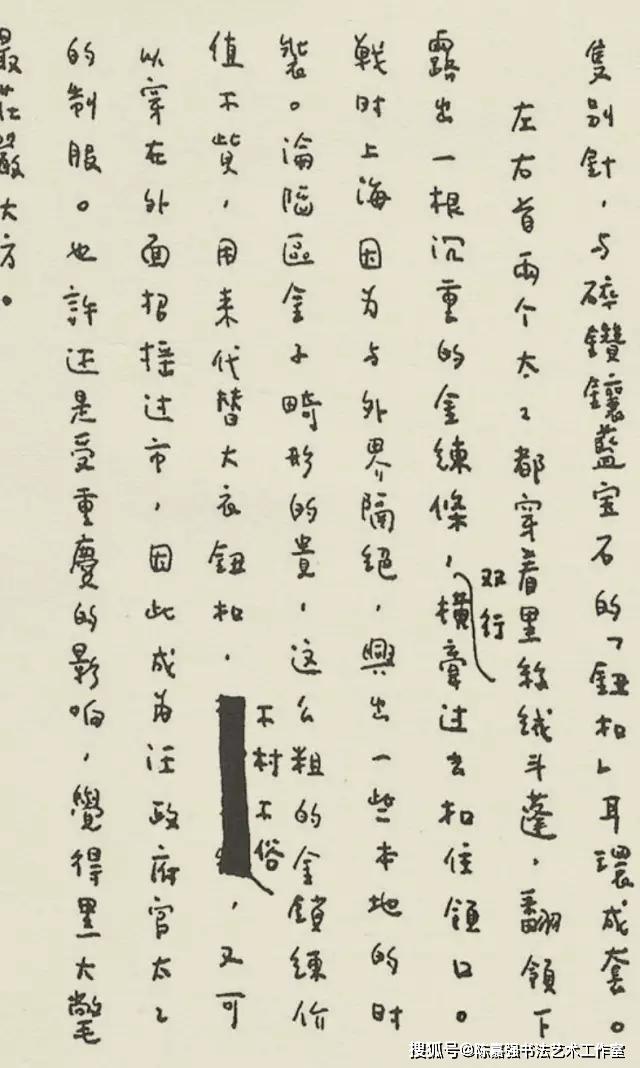 隻別針，与碎鑽鑲藍宝石的「鈕扣」耳環成套。
左右首兩个太〻都穿着黑絲絨斗蓬，翻領下
露出一根沉重的金練條，双行橫牽过去扣住領口。
戰时上海因为与外界隔絕，興出一些本地的时
裝。淪陷區金子畸形的貴，这么粗的金鎖練价
值不貲，用来代替大衣鈕扣，不村不俗，又可
以穿在外面招搖过市，因此成为汪政府官太〻
的制服。也許还是受重慶的影响，覺得黑大氅
最莊嚴大方。
搜狐号@陈嘉强书法艺术工作室